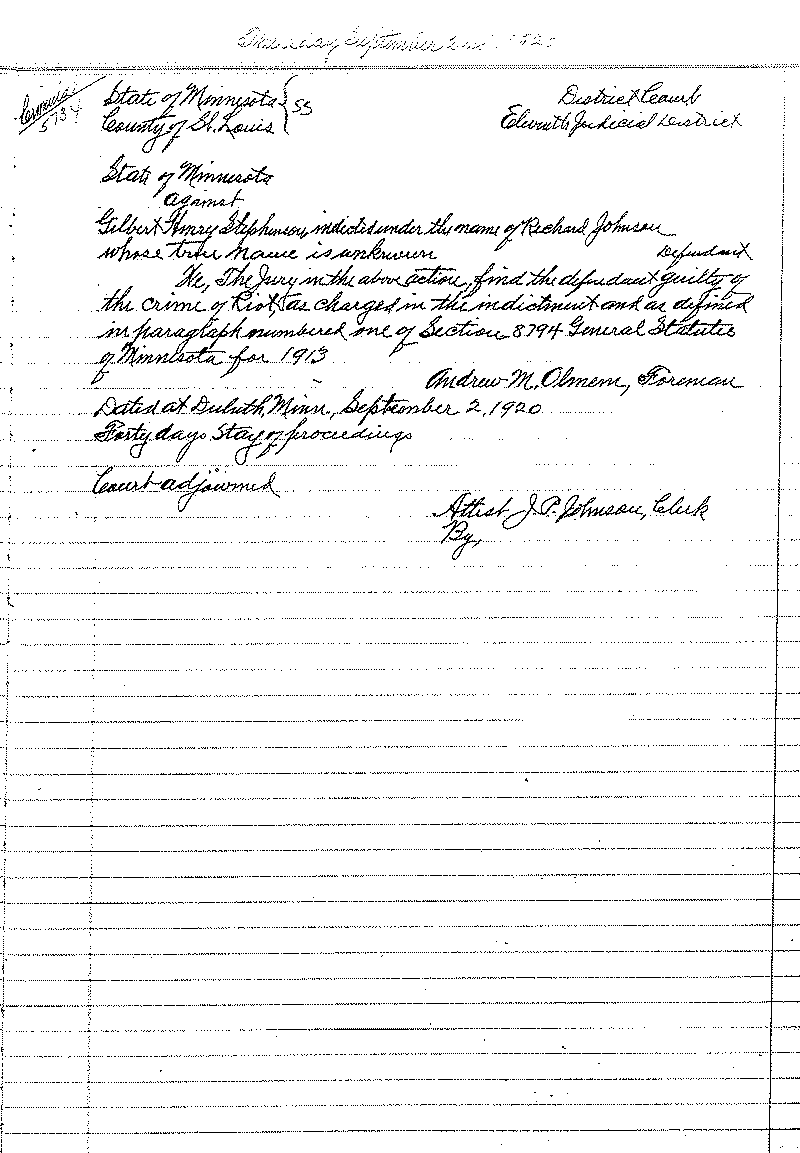 Thursday September 2nd 1920
Criminal
5734
State of Minnesota } SS
County of St. Louis
District Court
Eleventh Judicial District
State of Minnesota
against
Gilbert Henry Stephenson, indicted under the name of Richard Johnson
whose true name is unknown
Defendant
We, The Jury in the above action, find the defendant guilty of
the crime of Riot, as charged in the indictment and as defined
in paragraph numbered one of Section 8794 General Statutes
of Minnesota for 1913
Andrew M. Olmem, Foreman
Dated at Duluth, Minn., September 2, 1920
Forty days Stay of proceedings
Court adjourned
Attest J. P. Johnson, Clerk
By,